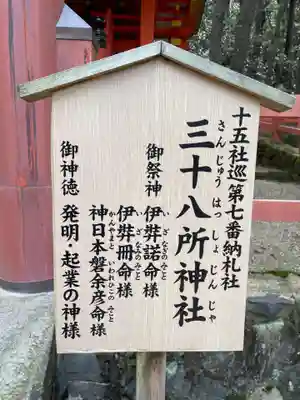 十五社巡第七番納札社
三十八所神社
さんじゅうはっしょじんじゃ
御祭神 伊弉諾命様
いざなのみこと
伊弉冊命様
いざなのみこと
神日本磐余彦命様
かむやまといわれひこのみこと
御神徳 発明・起業の神様